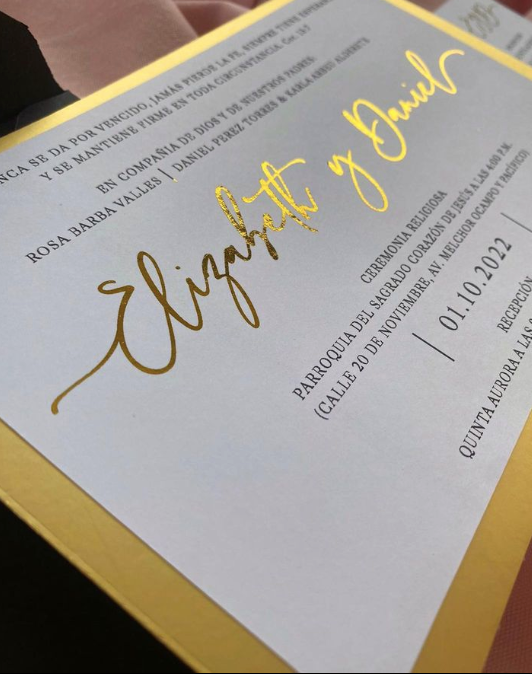 SE DA POR VENCIDO, JAMÁS PIERDE LA FE, SIEMPRE TIENE
Y SE MANTIENE FIRME EN TODA CIRCUNSTANCIA. Cor. 13:7
EN COMPAÑÍA DE DIOS Y DE NUESTROS PADRES:
ROSA BARBA VALLES | DANIEL PEREZ TORRES & KARLA ABREU
Elizabeth y Daniel
CEREMONIA RELIGIOSA
PARROQUIA DEL SAGRADO CORAZÓN DE JESÚS A LAS 4:00 P.M.
(CALLE 20 DE NOVIEMBRE, AV. MELCHOR OCAMPO Y PACÍFICO)
| 01.10.2022 |
RECEPCIÓN
QUINTA AURORA A LAS